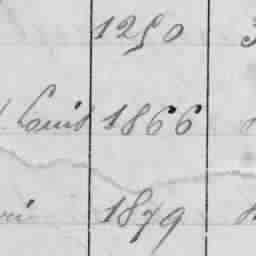 1250
Louis 1866
1879